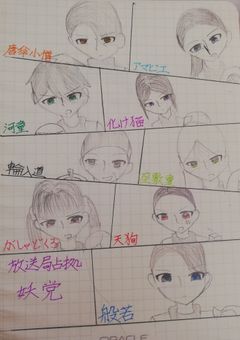 唐傘小僧
アマビエ
河童
化け猫
輪入道
座敷童
がしゃどくろ
天狗
放送局占拠
妖党
般若
ORACLE